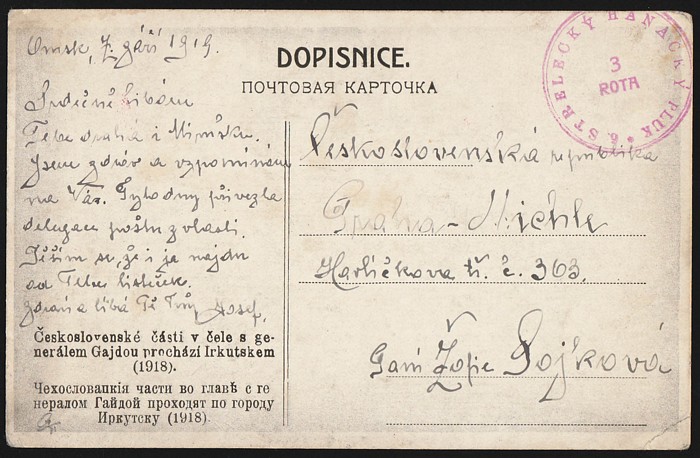 Omsk, 7. září 1919.
DOPISNICE.
ПОЧТОВАЯ КАРТОЧКА
6 STŘELECKÝ HANÁCKÝ PLUK
3
ROTA
Srdečně líbám
Tebe drahá i
Jsem zdráv a vzpomínám
na Vás. přivezla
delegace poštu z vlasti.
Těším se, že i já najdu
od Tebe lísteček.
Zdraví a líbá Tě Tvůj Josef.
Československá republika
Praha-Michle
Havlíčkova tř. č. 363.
Paní Žofie Sojková
Československé části v čele s ge-
nerálem Gajdou prochází Irkutskem
(1918).
Чехословацкія части во главѣ с ге
нералом Гайдой проходят по городу
Иркутску (1918).